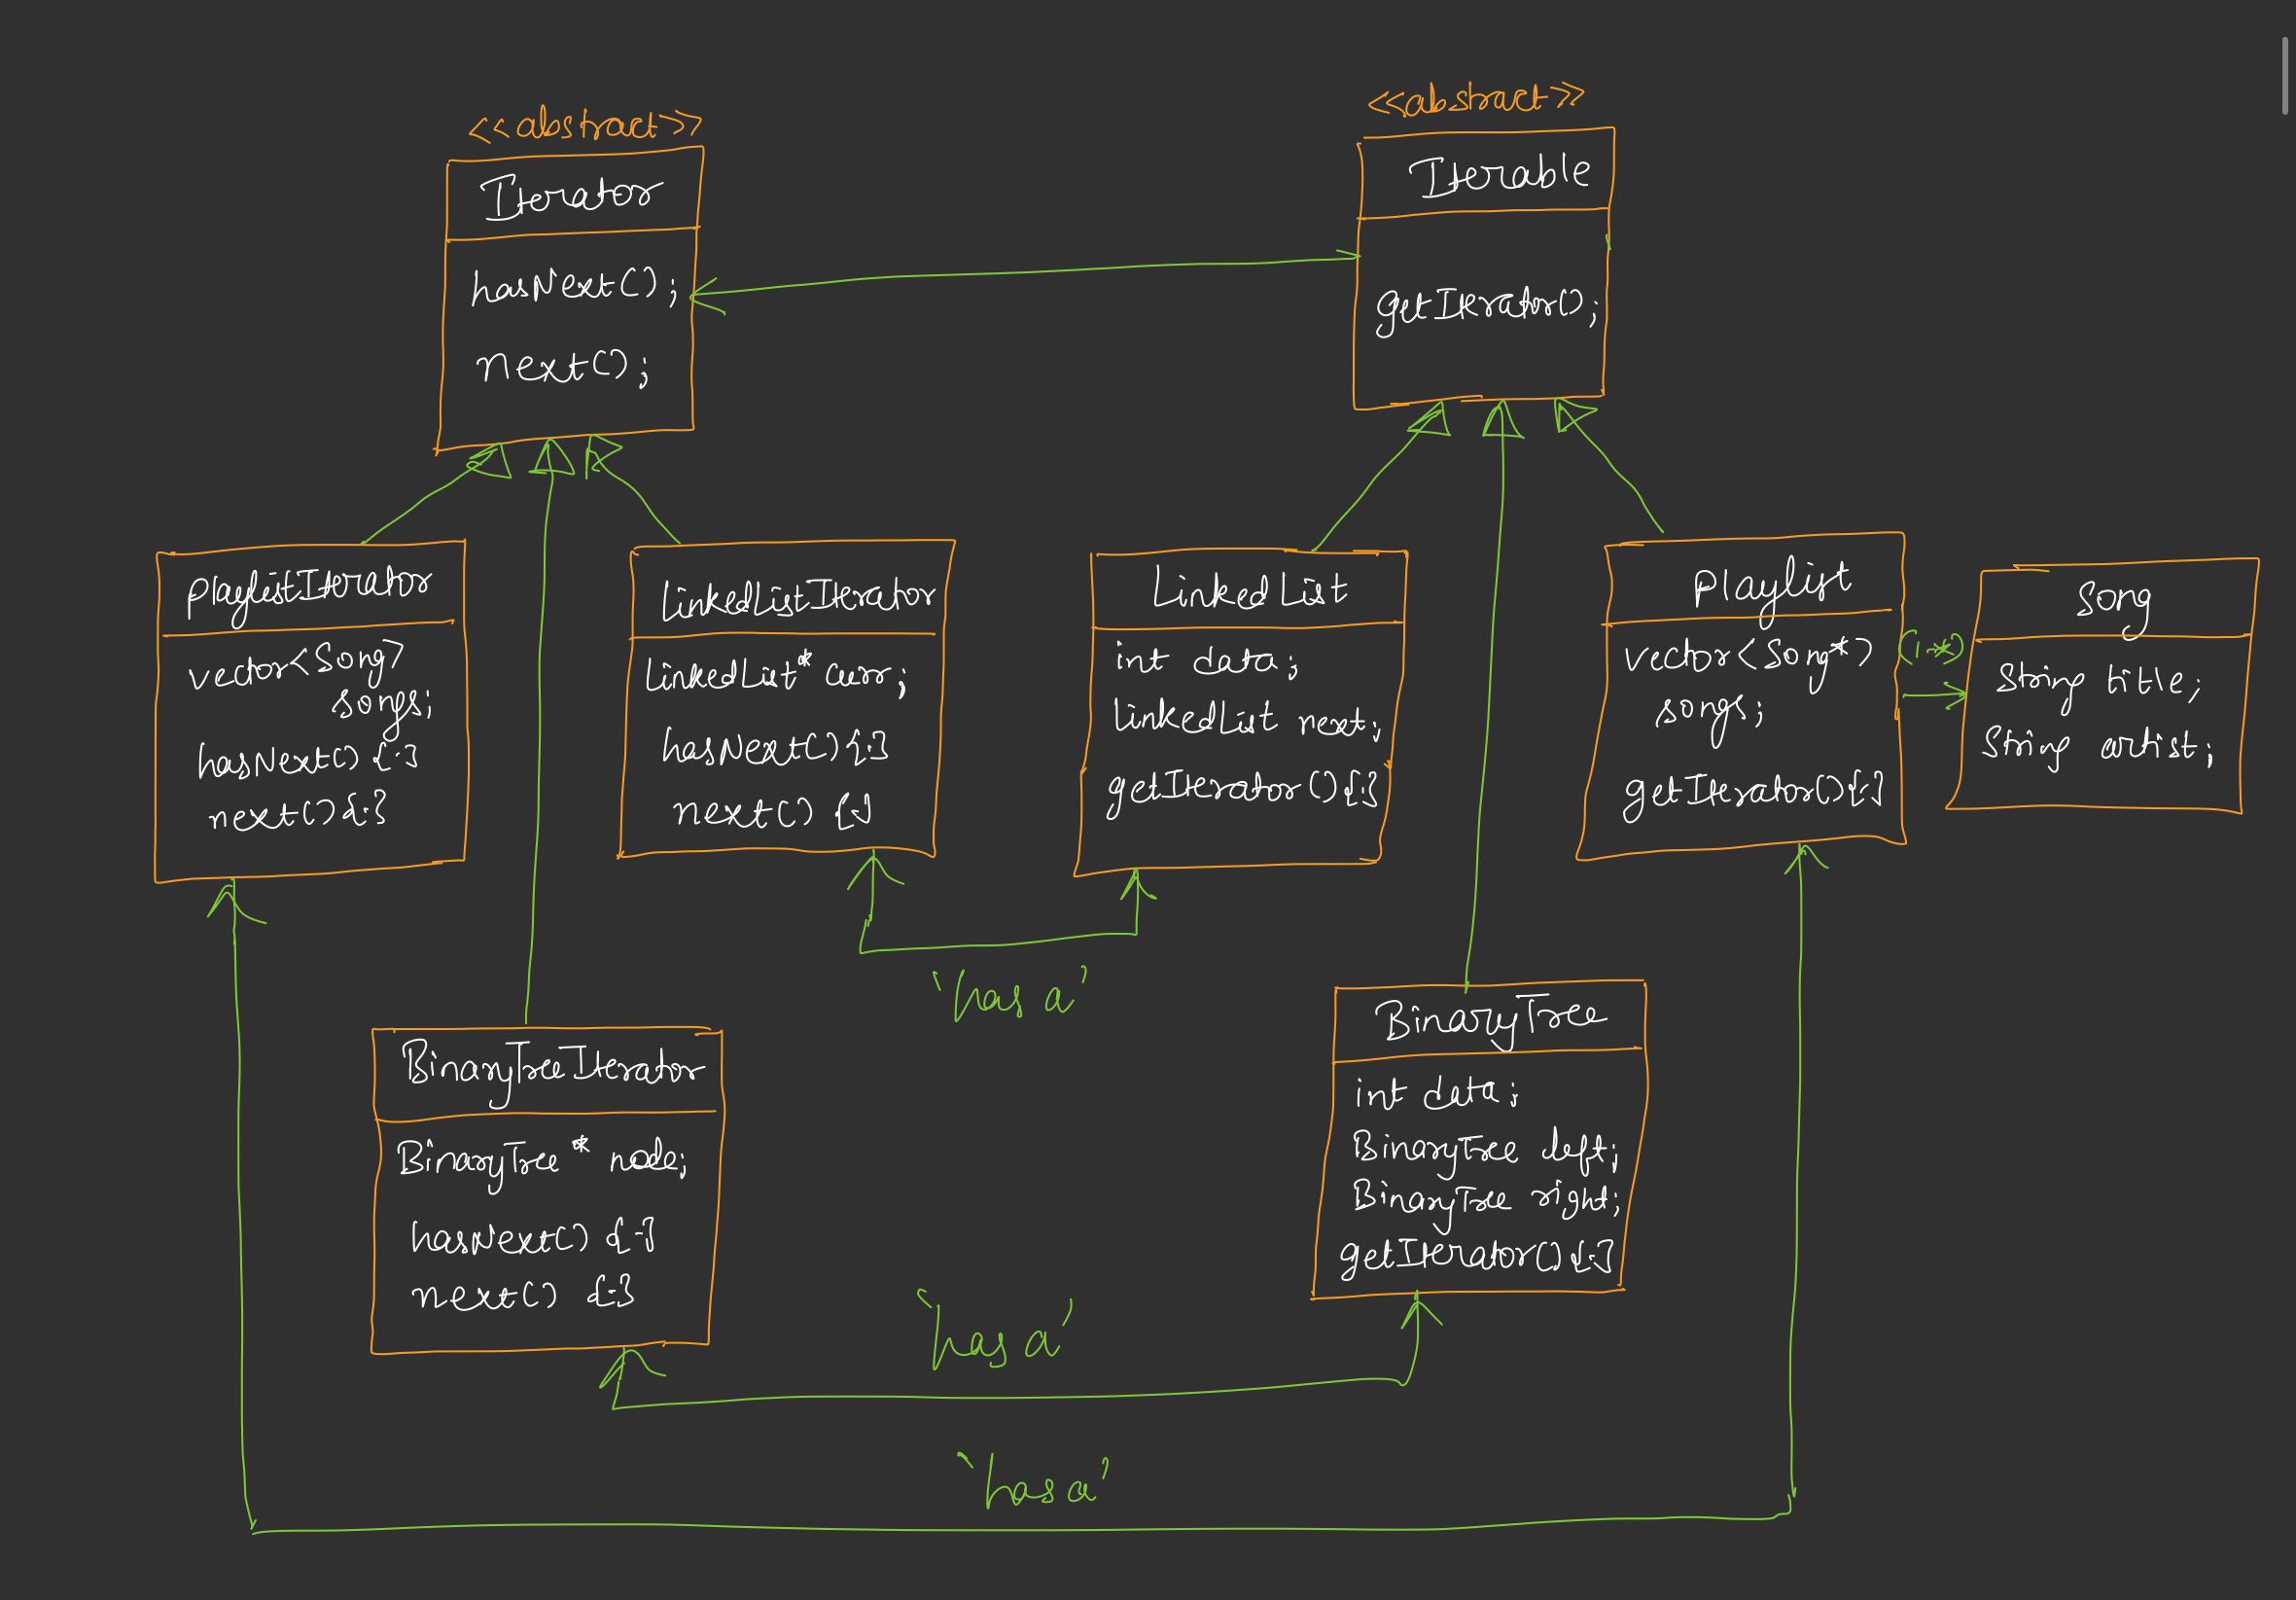 <<abstract>>
Iterator
hasNext();
next();
<<abstract>>
Iterable
getIterator();
PlaylistIterator
vector<Song>
songs;
hasNext() {:}
next() {:}
LinkedListIterator
LinkedList* curr;
hasNext() {:}
next() {:}
LinkedList
int data;
LinkedList next;
getIterator() {:}
Playlist
vector<Song*>
songs;
getIterator() {:}
(1-*)
Song
String title;
String artist;
'has a'
BinaryTreeIterator
BinaryTree* node;
hasNext() {:}
next() {:}
BinaryTree
int data;
BinaryTree left;
BinaryTree right;
getIterator() {:}
'has a'
'has a'